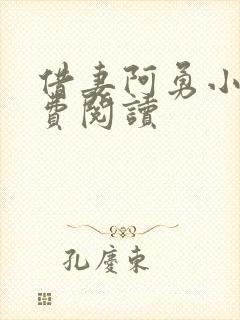 借妻阿勇小
費閱讀
孔慶東